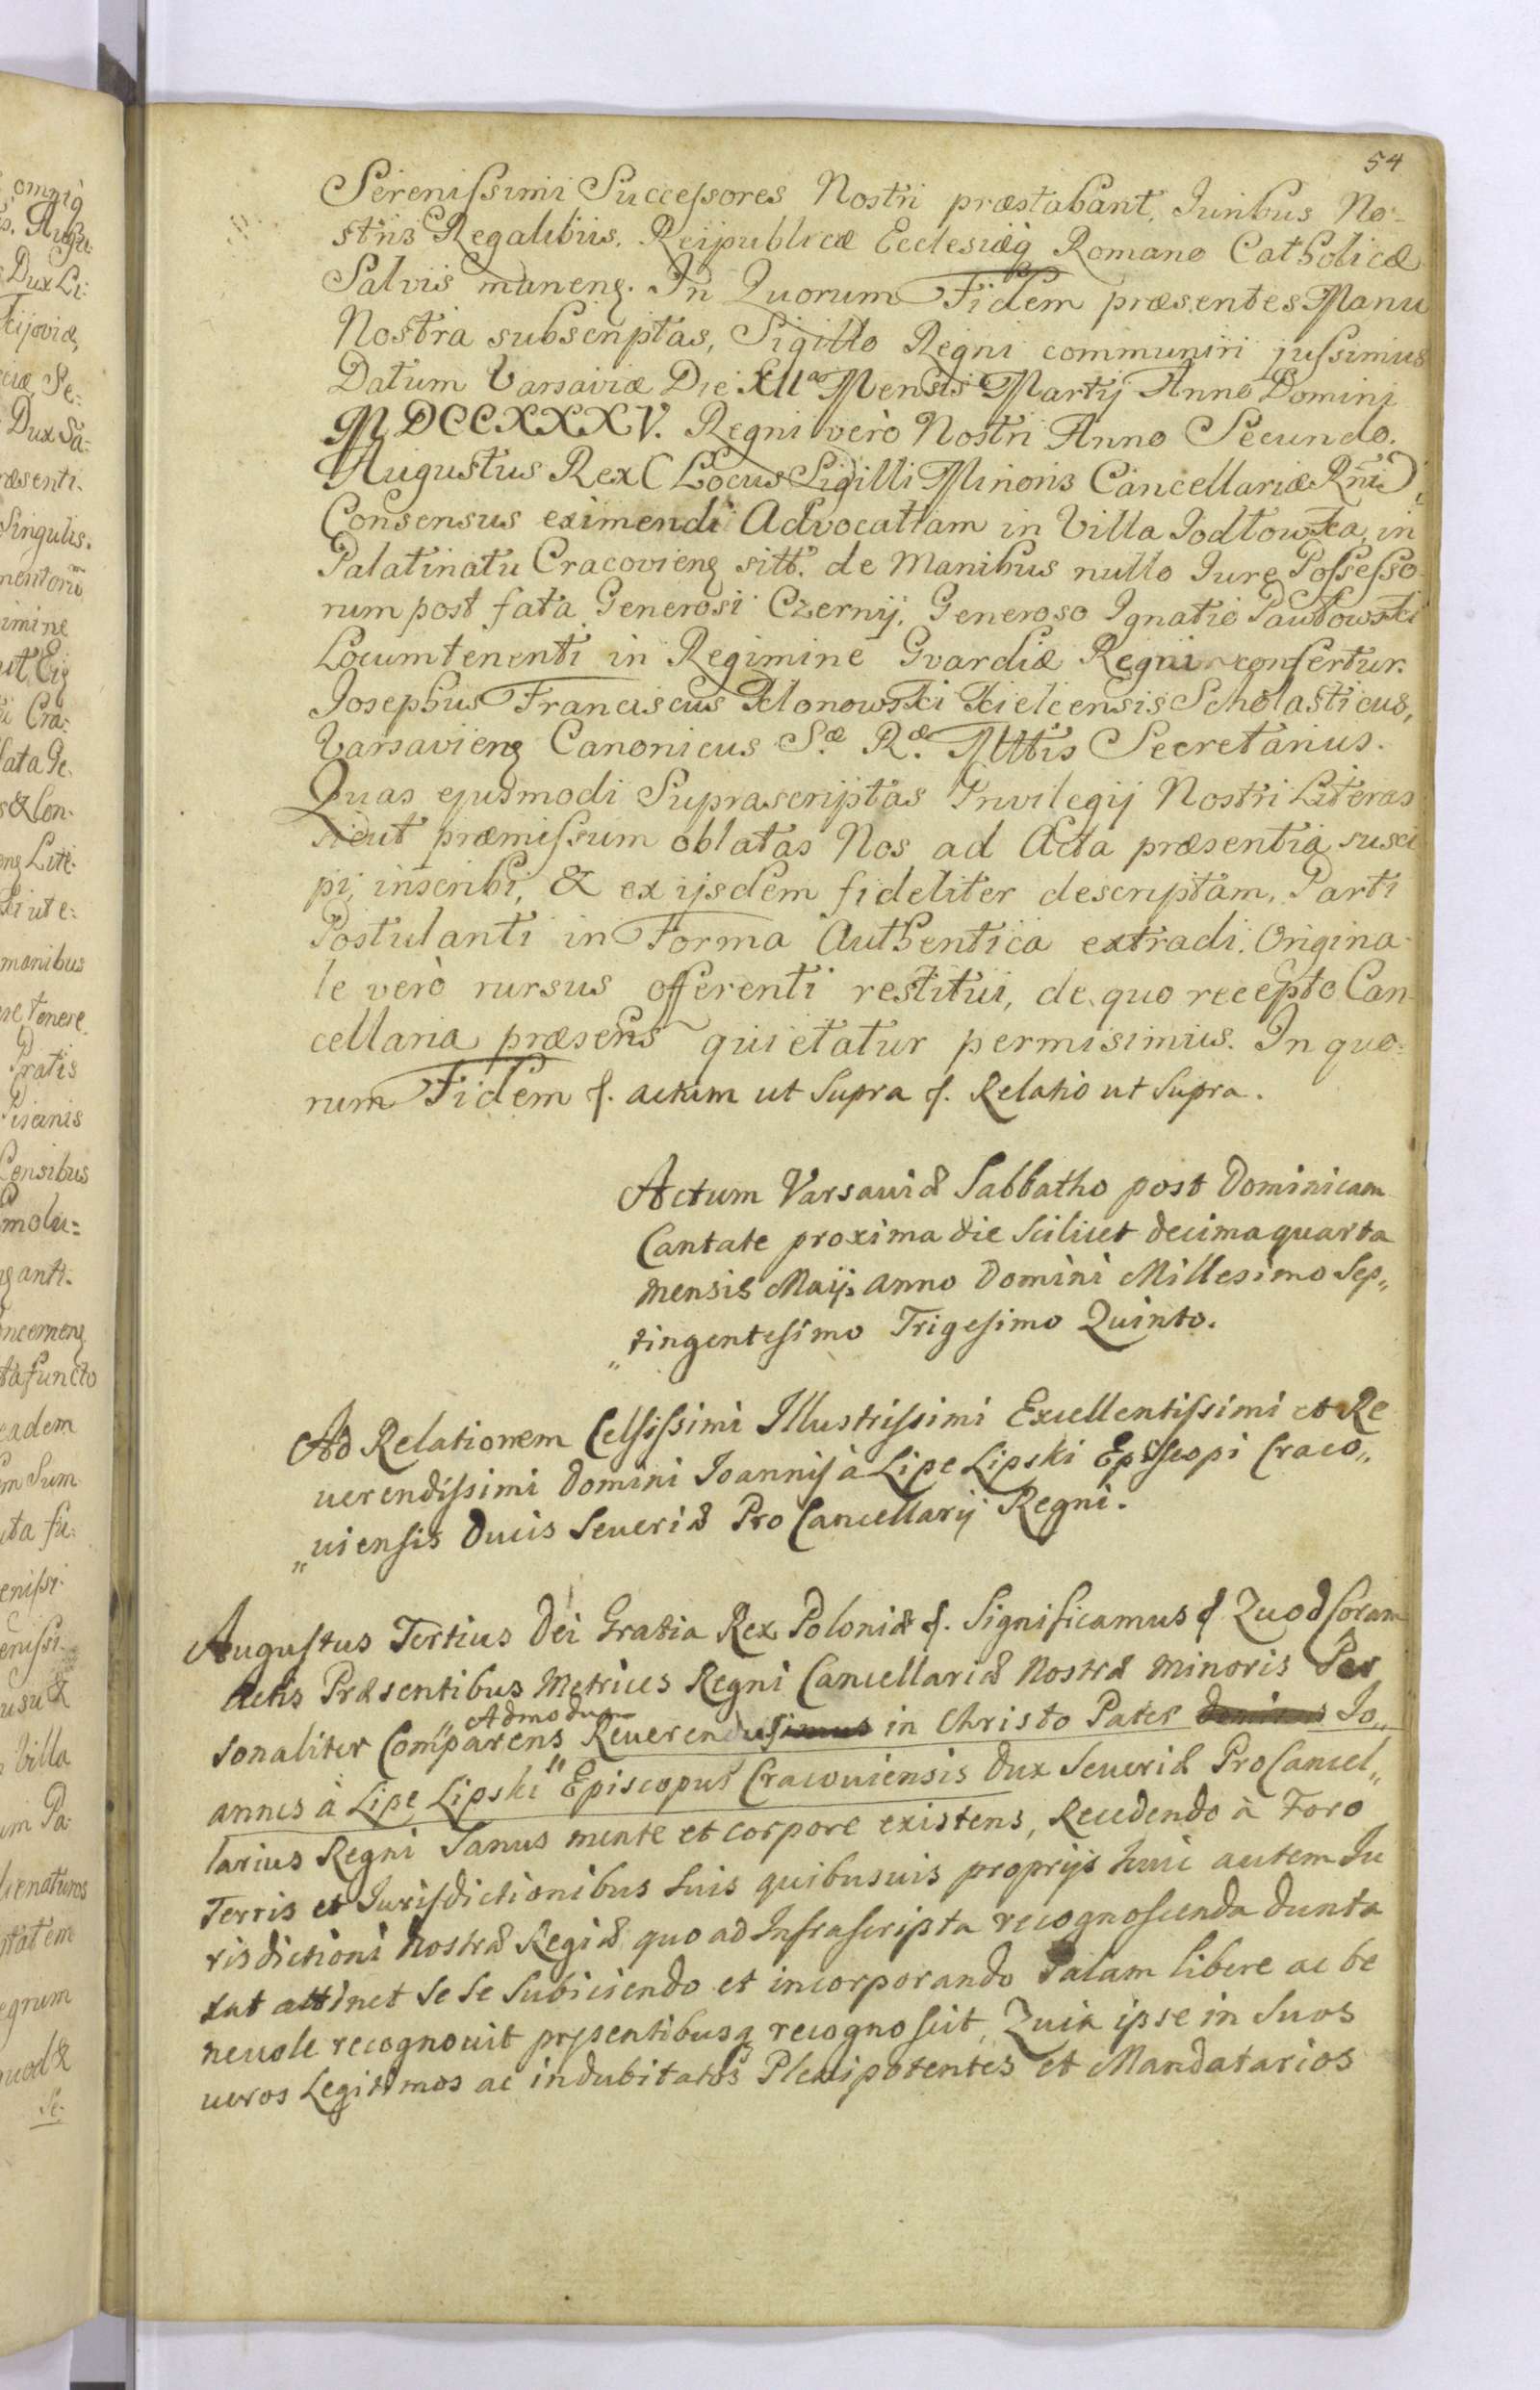 54
Serenissimi Successores Nostri præstabant, Iuribus No-
stris Regalibus, Reipublicæ Ecclesiæq Romano Catholicæ
Salvis maneng. In Quorum Fidem præsentes Manu
Nostra subscriptas, Sigillo Regni communiri jussimus
Datum Varsaviæ Die XIIa Mensis Martij Anno Domini
MDCCXXXV. Regni verò Nostri Anno Secundo.
Augustus Rex (Locus Sigilli Minoris Cancellariæ Rni)
Consensus eximendi Advocatiam in Villa Jodłowka, in
Palatinatu Cracovieng sitt. de Manibus nullo Iure Possesso-
rum post fata Generosi Czernij, Generoso Ignatio Pawłowski
Locumtenenti in Regimine Gvardiæ Regni confertur.
Josephus Franciscus Klonowski Kielcensis Scholasticus,
Varsavieng Canonicus Sæ Ræ Mttis Secretarius.
Quas ejusmodi Suprascriptas Privilegij Nostri Literas
sicut præmissum oblatas Nos ad Acta præsentia susci
pi, inscribi, & ex ijsdem fideliter descriptam, Parti
Postulanti in Forma Authentica extradi. Origina-
le verò rursus offerenti restitui, de quo recepto Can-
cellaria præsens quietatur permisimus. In quo-
rum Fidem &. actum ut Supra &. Relatio ut Supra.
Actum Varsauiæ Sabbatho post Dominicam
Cantate proxima die scilicet decima quarta
mensis Maij anno Domini Millesimo Sep„
„tingentesimo Trigesimo Quinto.
Ad Relationem Celsissimi Illustrissimi Excellentissimi et Re
uerendissimi Domini Ioannis à Lipe Lipski Episcopi Craco„
„uiensis Ducis Seueriæ Pro Cancellarij Regni.
Augustus Tertius Dei Gratia Rex Poloniæ &. Significamus & Quod Coram
Actis Præsentibus Metrices Regni Cancellariæ Nostræ Minoris Per
„Admodum
sonaliter Comparens Reuerendusimus in Christo Pater Dominus Io„
annes à Lipe Lipski Episcopus Cracouiensis Dux Seueriæ ProCancel„
larius Regni Sanus mente et corpore existens, Recedendo à Foro
Terris et Iurisdictionibus Suis quibusuis proprijs huic autem Iu
risdictioni Nostræ Regiæ quo ad Infrascripta recognoscenda dunta
xat attinet Se Se Subiciendo et incorporando Palam libere ac be
neuole recognouit præsentibusq recognoscit, Quia ipse in Suos
ueros Legitimos ac indubitatos Plenipotentes et Mandatarios